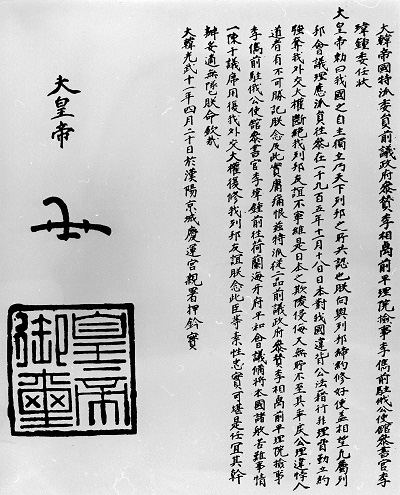 大韓帝國特派委員前議政府參贊李相卨前平理院檢事李儁前駐俄公使館參書官李
瑋鍾委任狀
大皇帝勅曰我國之自主獨立乃天下列邦之所共認也朕向與列邦締約修好使盖相望凡屬列
邦會議理應派員往參在一千九百五年十一月十八日日本對我國違背公法肆行非理脅勒立約
強奪我外交大權斷絶我列邦友誼不寧維是日本之欺陵侵侮又無所不至其乖戾公理違悖人
道者有不可勝記朕念及此實屬痛恨玆特派從二品前議政府參贊李相卨前平理院檢事
李儁前駐俄公使館參書官李瑋鍾前往荷蘭海牙府平和會議備將本國諸般苦難事情
一陳于議席用復我外交大權復修我列邦友誼朕念此臣等素性忠實可堪是任宜其幹
辦妥適無隊朕命欽哉
大韓光武十一年四月二十日於漢陽京城慶運宮親署押鈐寶
大皇帝
皇帝
御璽